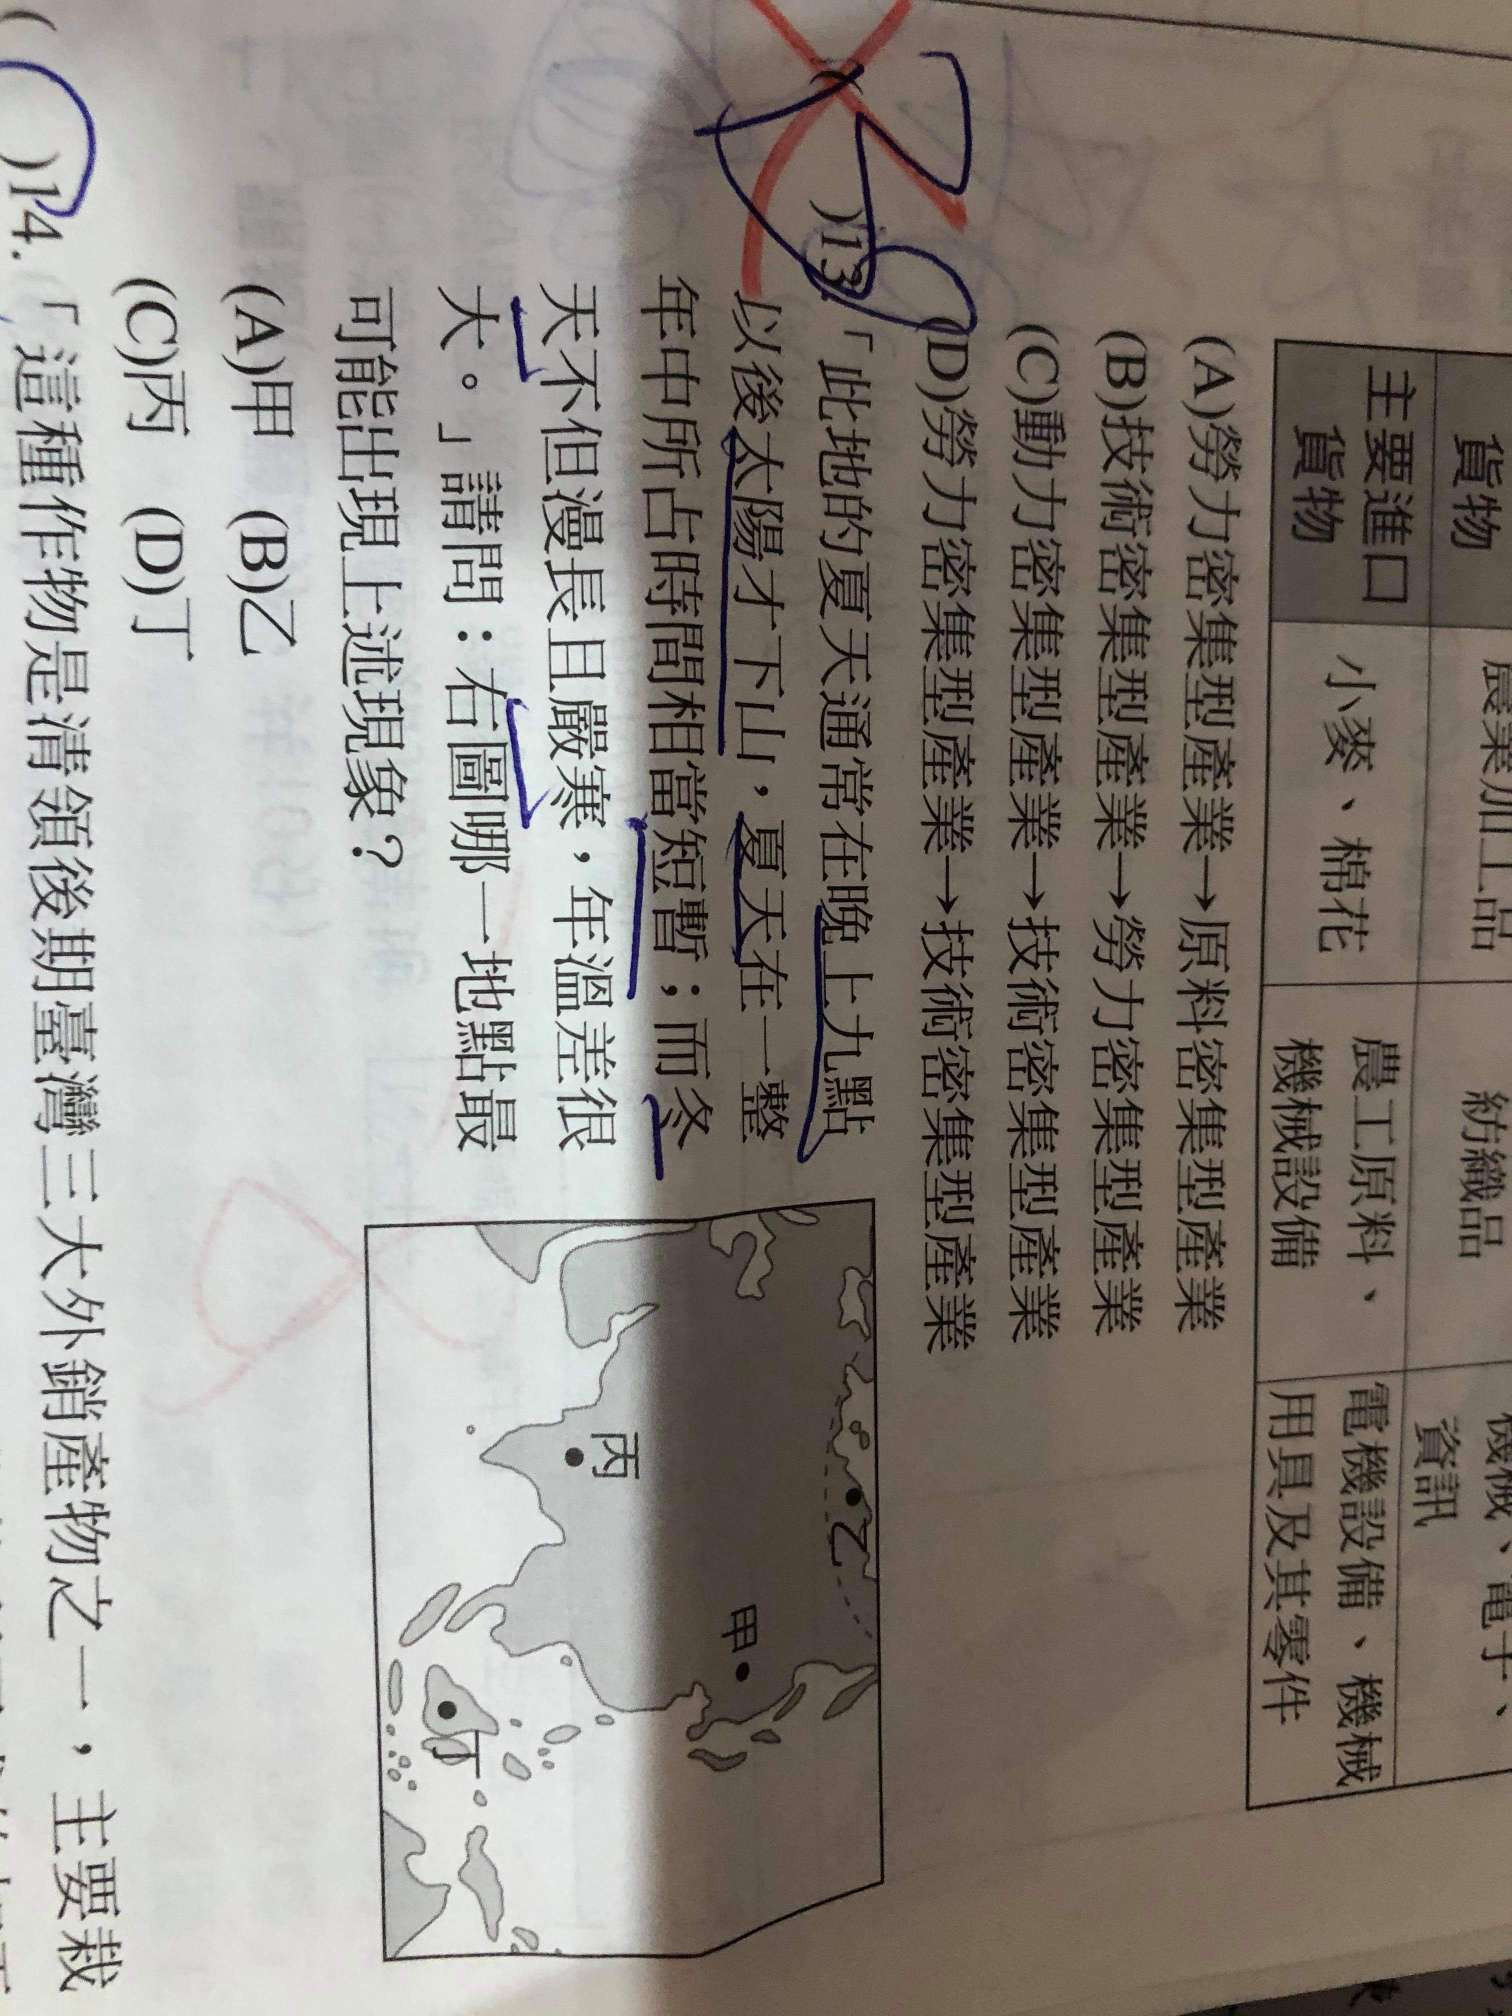 貨物 農業加工品 紡織品 機械、電子、資訊
主要進口貨物 小麥、棉花 農工原料、機械設備 電機設備、機械用具及其零件
(A)勞力密集型產業→原料密集型產業
(B)技術密集型產業→勞力密集型產業
(C)動力密集型產業→技術密集型產業
(D)勞力密集型產業→技術密集型產業
)13.「此地的夏天通常在晚上九點
以後太陽才下山，夏天在一整
年中所占時間相當短暫；而冬
天不但漫長且嚴寒，年溫差很
大。」請問：右圖哪一地點最
可能出現上述現象？
(A)甲 (B)乙
(C)丙 (D)丁
乙
甲
丙
丁
( )14.「這種作物是清領後期臺灣三大外銷產物之一，主要栽